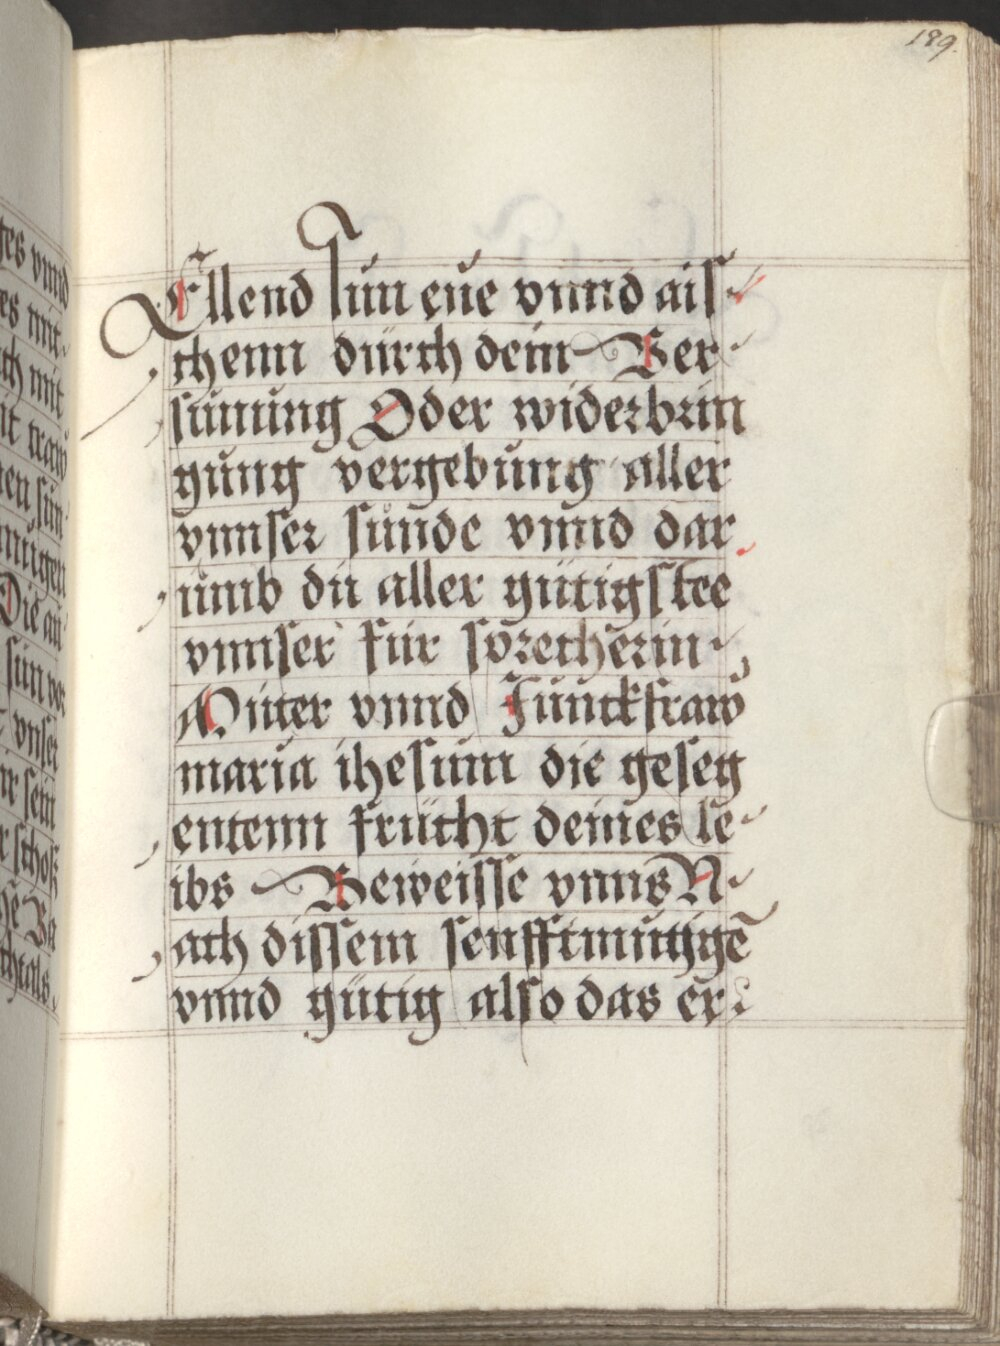 189.
Ellend sün eüe vnnd aisch
chenn dürch dein Ver
sünung Oder widerbrin
gung vergebung aller
vnnser sünde vnnd dar
ümb dü aller gütigstee
vnnser für sprecherin
Müter vnnd Junckfraw
maria ihesüm die geseg
entenn frücht deines le
ibs Beweisse vnns N
ach dissem senfftmütigē
vnnd gütig also das er